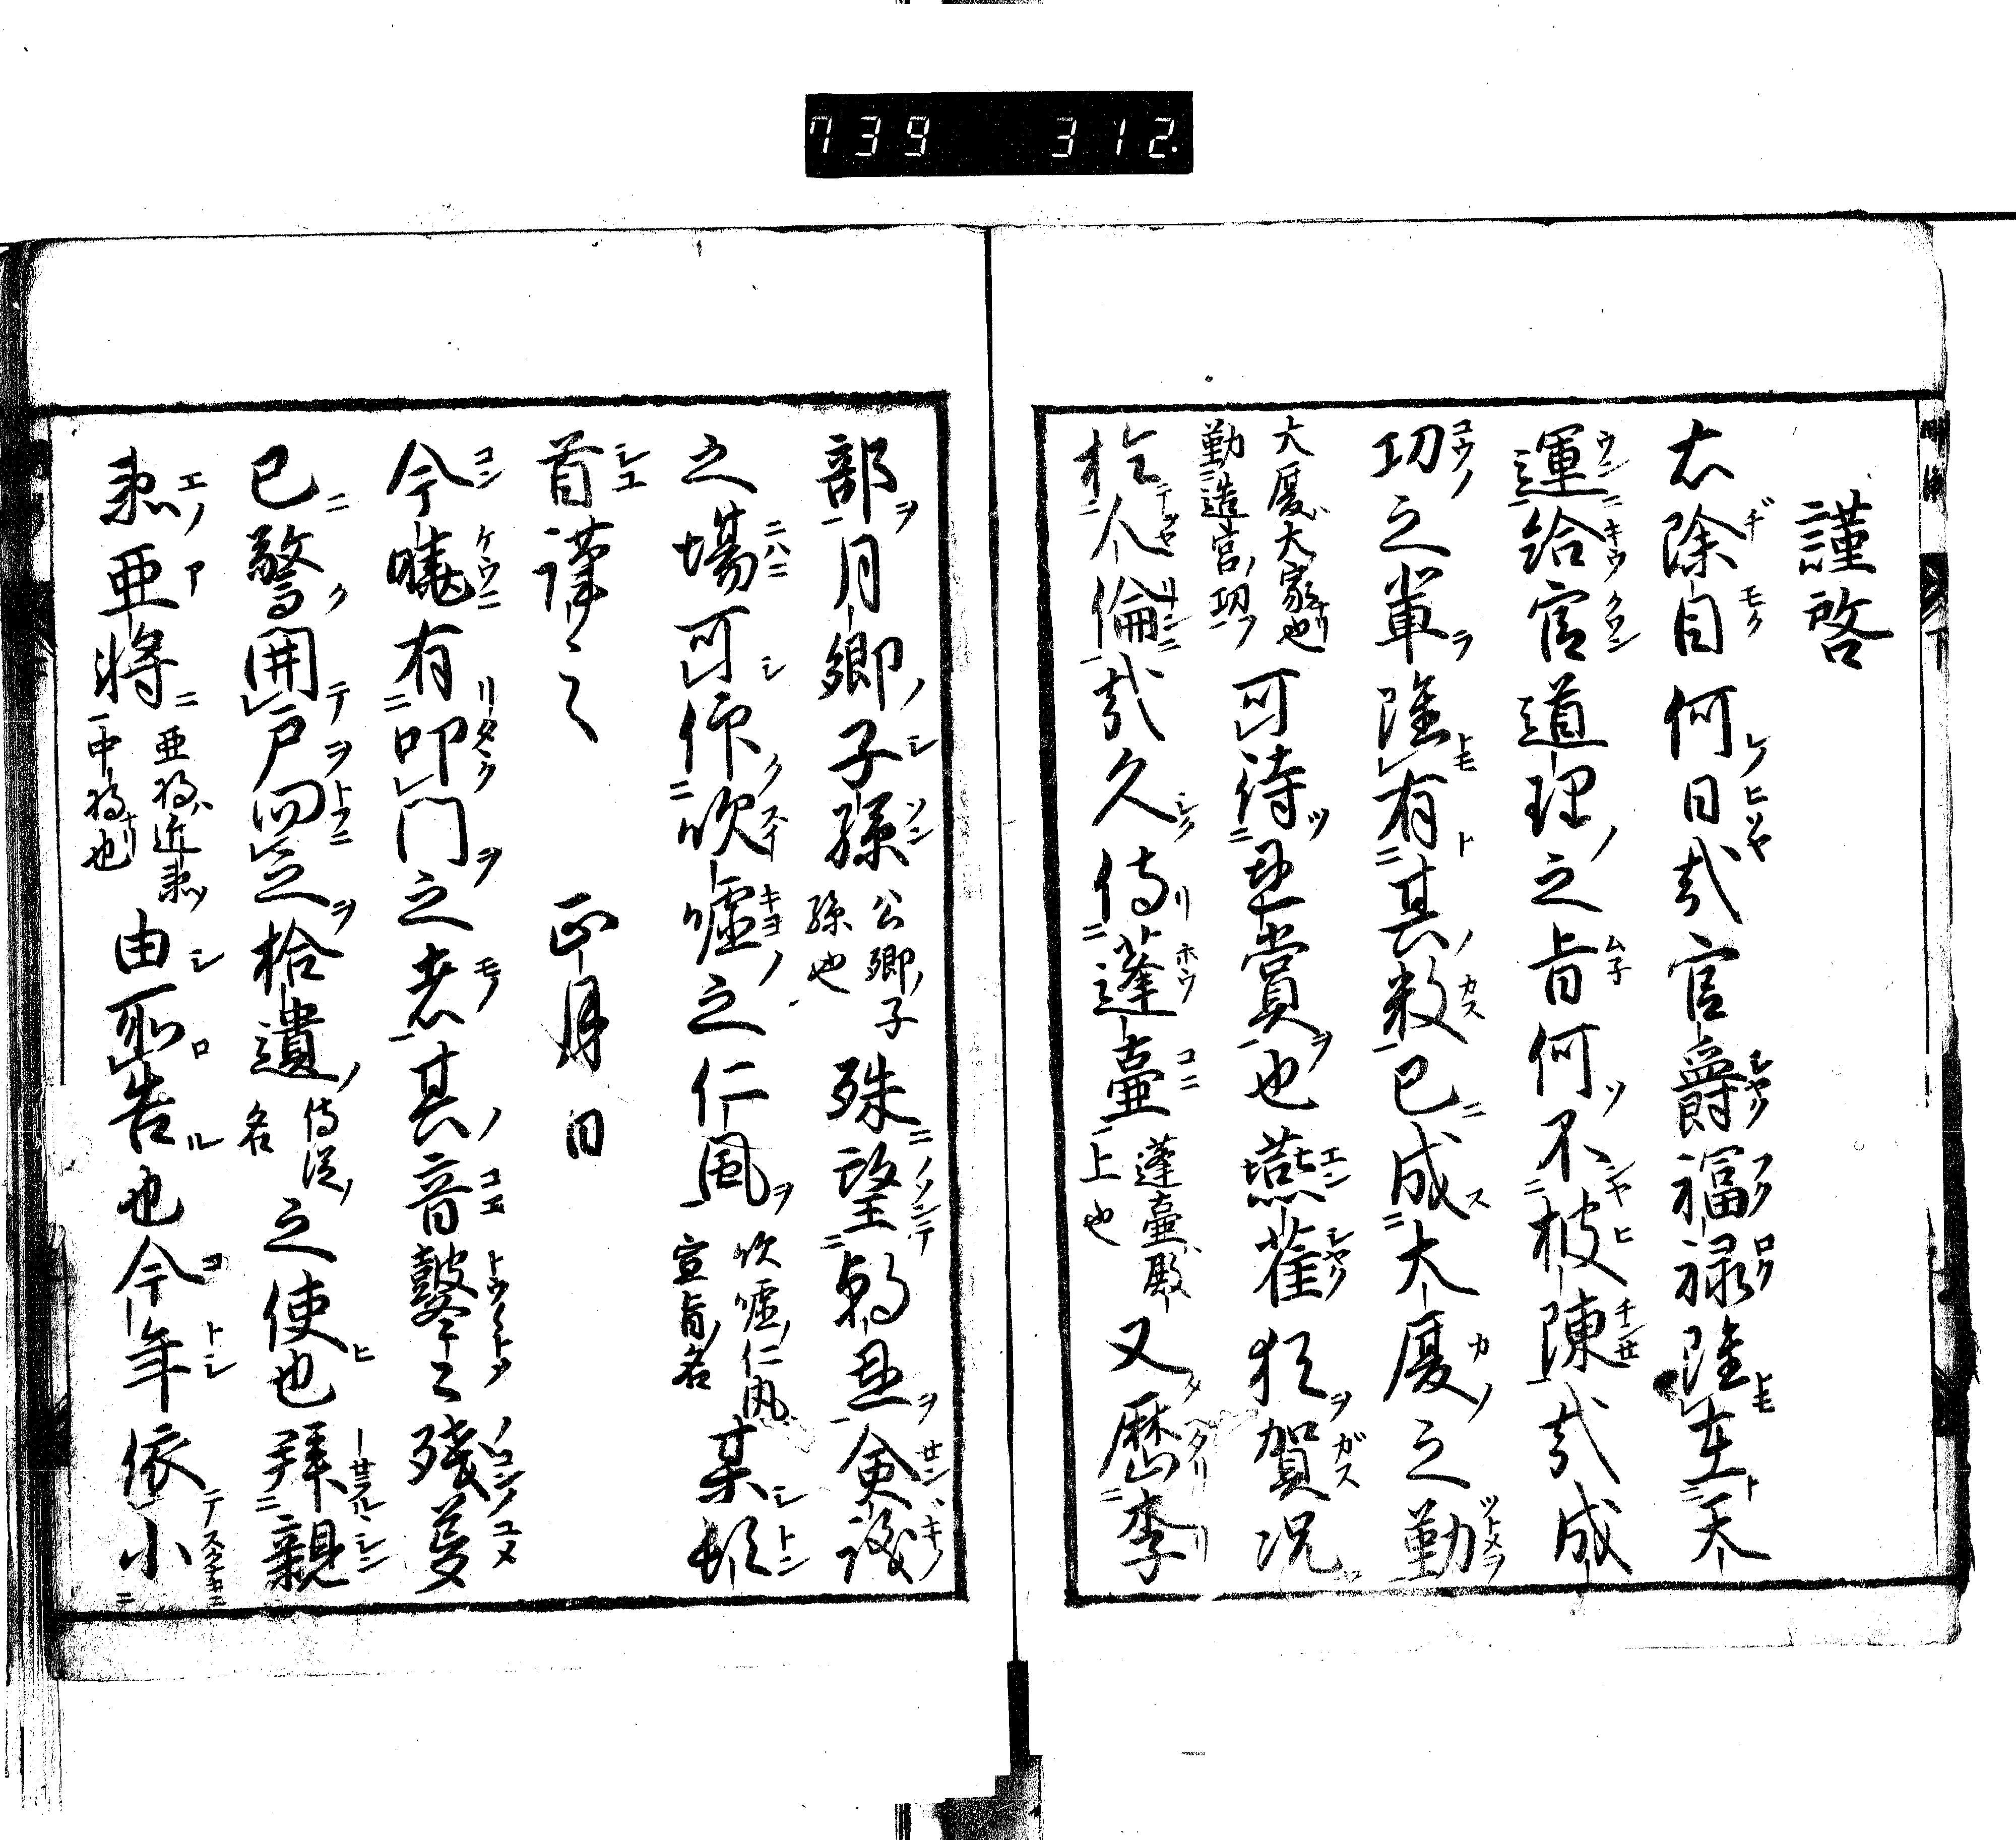 739 312
謹啓
右除目何日哉官爵福禄雖在天
運給官道理之旨何不被陳哉成
功之輩雖有其数已成大廈之勤
大廈大家也
勤造営功
可待恩賞也燕雀猶賀况
於人倫哉久侍蓬壷
蓬壷殿
上也
又歴李
部月卿子孫
公卿子
孫也
殊望朝恩僉議
之場可仰吹嘘之仁風
吹嘘仁風
宣旨名
某頓
首謹々
正月日
今暁有叩門之者其音鼕々残夢
已驚開戸問之拾遺
侍従
名
之使也拝親
衛亜将
亜将近衛
中将也
由所告也今年依小